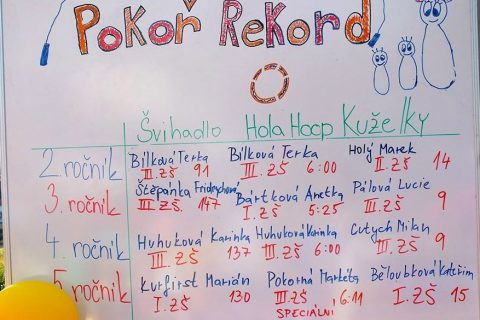 Pokoř Rekord
Švihadlo Hola Hoop Kuželky
2. ročník Bílková Terka Bílková Terka Holý Marek
II. ZŠ 91 II. ZŠ 6:00 II. ZŠ 14
3. ročník Štěpánka Fridrychová Bártková Anetka Pálová Lucie
III. ZŠ 147 I. ZŠ 5:25 III. ZŠ 9
4. ročník Huhuková Karinka Huhuková Karinka Cutych Milan
III. ZŠ 137 III. ZŠ 6:00 III. ZŠ 9
5. ročník Kurfirst Marián Pokorná Markéta Běloubková Kateřin
I. ZŠ 130 III. ZŠ 6:11 I. ZŠ 15
SPECIÁLNÍ